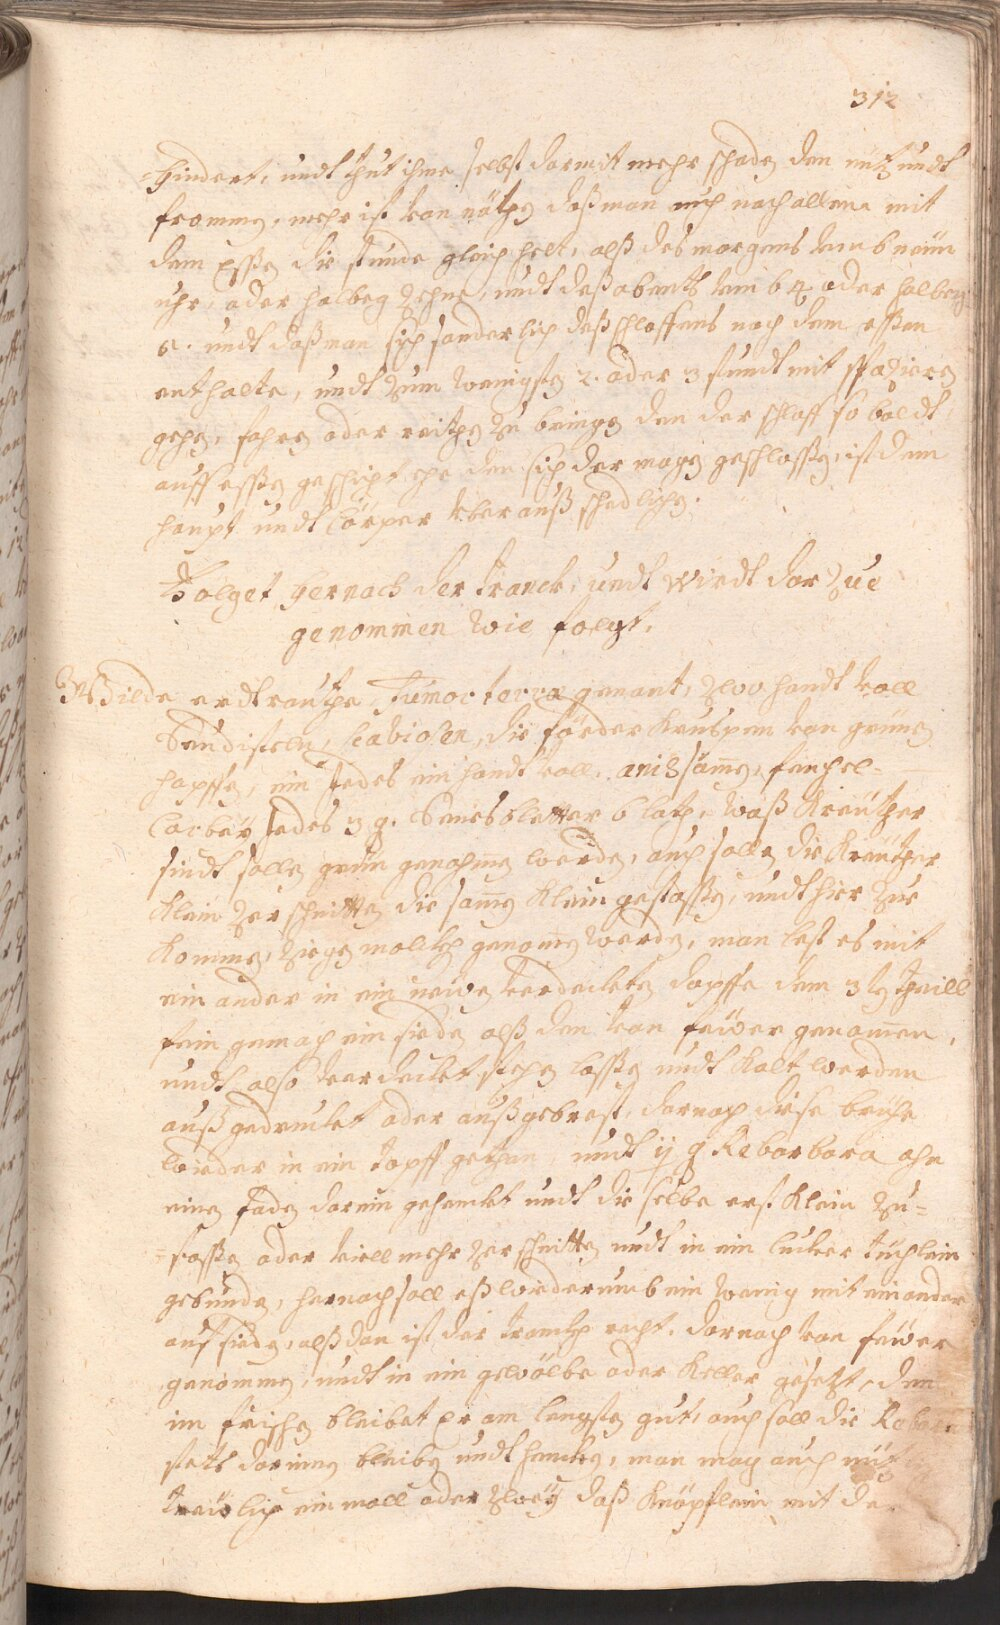 312
hindert, undt thut ihme selbst darmit mehr schaden den nutz undt
frommen, mehr ist von nöthen daß man auch nach allem mit
dem Essen die stunde gleich helt, alß des morgens umb neun
uhr, oder halbeg Zehne, undt deß abents umb 4 oder halbeg
5. undt daß man sich sonderlich deß schlaffens nach dem essen
enthalte, undt Zum wenigsten 2. oder 3 stundt mit spaZieren
gehen, fahren oder reithen Zu bringen den der schlaff so baldt
auff essen geschicht ehe den sich der magen geschlossen, ist dem
haupt undt Cörper uber auß schedlichen.
Folget hernach der tranck, undt wirdt dar Zue
genommen wie folgt.
Wilde erdtrauthe Fumor terræ genant, Zwo handt voll
Endisteln, Scabiosen, die förder Knuspen von grünen
hopffen, ein Jedes ein handt voll, anis samen, fenchel-
Lorbör Jedes 3 q. Senesbletter 6 loth, waß Kreuther
sindt sollen grün genohmen werden, auch sollen die Kreuther
Klein Zer schnitten die samen Klein gestossen, undt hier Zue
Kommen, Ziegen molckh genomen werden, man lest es mit
ein ander in ein newen verdeckten dopffe dem 3 ten theill
fein gemach ein sieden alß den von fewer genommen,
undt also verdecket stehen lassen undt Kalt werden
auß gedrucket oder außgebrest, darnach diese brühe
wieder in ein topff gethan, undt ij q Rebarbara ahn
einen faden darein gehenckt undt die selbe erst Klein Zu-
stossen oder viell mehr Zer schnitten undt in ein lucker tüchlein
gebunden, hernach soll eß wiederumb ein wenig mit einander
auf sieden, alß dan ist der tranckh recht. darnach von fewer
genommen, undt in ein gewölbe oder Keller gesetzt, den
im frischen bleibet er am lengsten gut, auch soll die
stets darinnen bleiben undt hencken, man mag auch
treulich ein mall oder Zwey daß Knöpflein mit